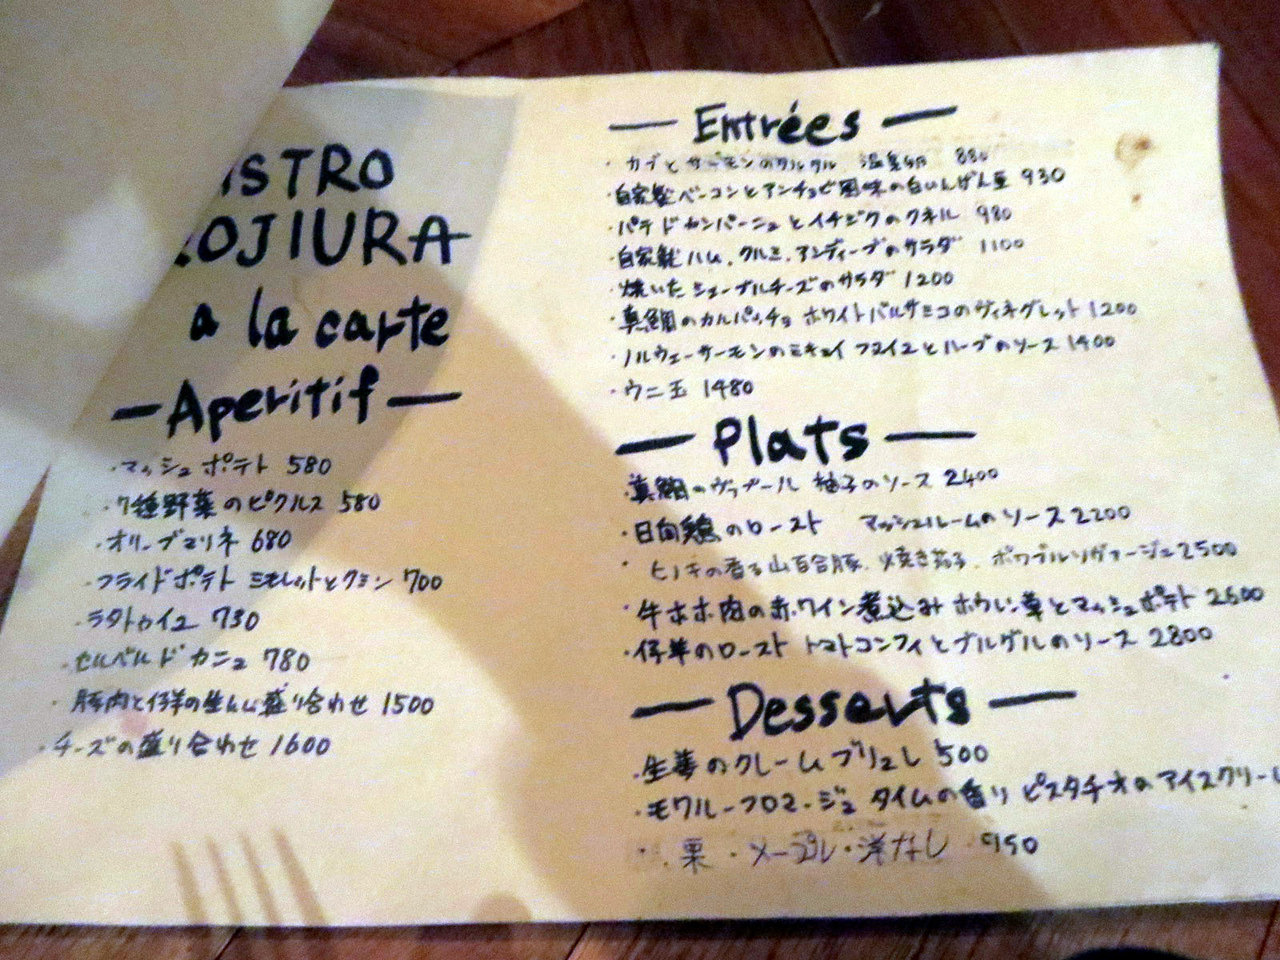 ISTRO
ROJIURA
a la carte
— Aperitif —
・マッシュポテト 580
・7種野菜のピクルス 580
・オリーブマリネ 680
・フライドポテト ミモレットとクミン 700
・ラタトゥイユ 730
・セルベル ド カニュ 780
・豚肉と仔羊の生ハム盛り合わせ 1500
・チーズの盛り合わせ 1600
— Entrées —
・カブとサーモンのタルタル 温泉卵 880
・自家製ベーコンとアンチョビ風味の白いんげん豆 930
・パテ ド カンパーニュとイチジクのクネル 980
・自家製ハム、クルミ、アンディーブのサラダ 1100
・焼いたシェーブルチーズのサラダ 1200
・真鯛のカルパッチョ ホワイトバルサミコのヴィネグレット 1200
・ノルウェーサーモンのミキュイ フヌイユとハーブのソース 1400
・ウニ玉 1480
— Plats —
・真鯛のヴァプール 柚子のソース 2400
・日向鶏のロースト マッシュルームのソース 2200
・ヒノキの香る山百合豚、焼き茄子、ポワブルソヴァージュ 2500
・牛ホホ肉の赤ワイン煮込み ホウレン草とマッシュポテト 2600
・仔羊のロースト トマトコンフィとブルグルのソース 2800
— Desserts —
・生姜のクレームブリュレ 500
・モワルーフロマージュ タイムの香り ピスタチオのアイスクリー
・栗・メープル・洋なし 950